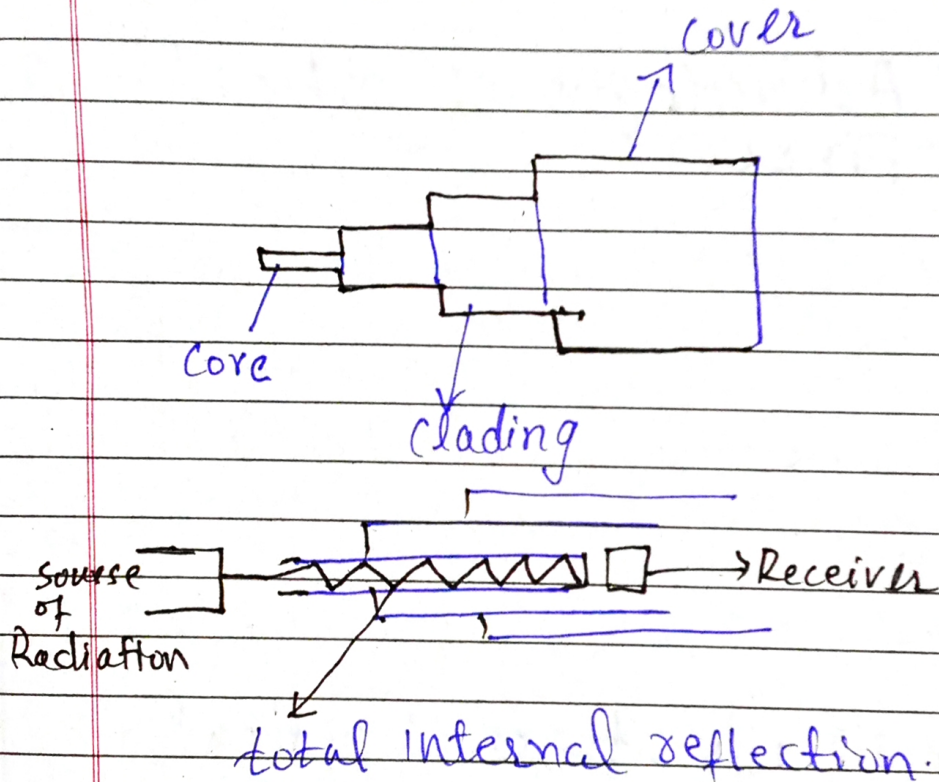 Cover
Core
Clading
Sourse
of
Radiation
Receiver
total internal reflection.